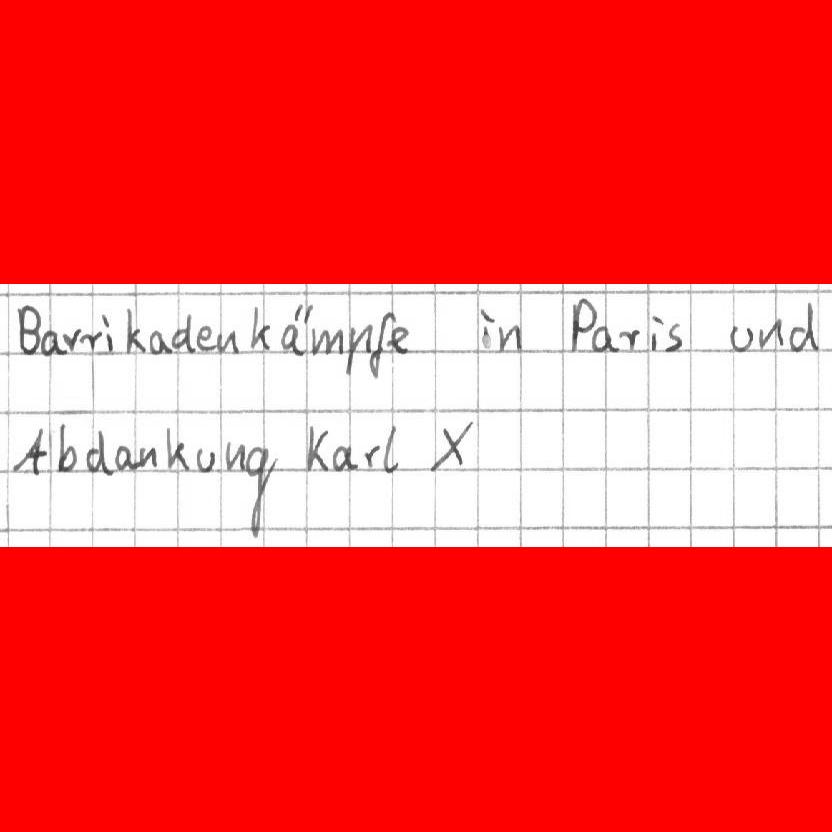 Barrikadenkämpfe in Paris und
Abdankung Karl X